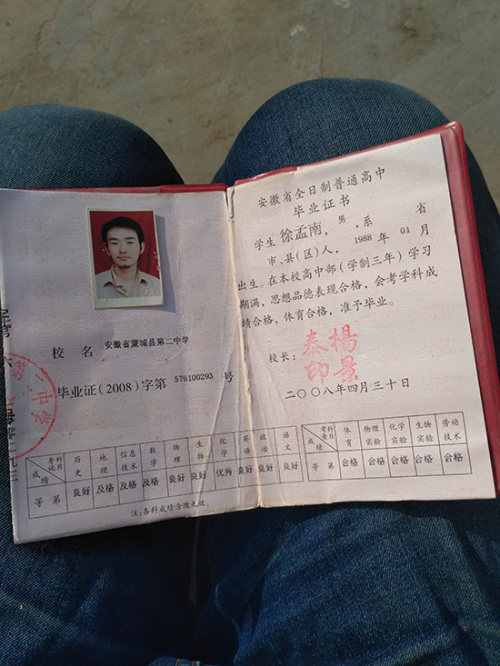 校 名 安徽省蒙城县第二中学
毕业证(2008)字第 576100293 号
考试科目 成绩 历史 地理 信息技术 数学 物理 生物 化学 英语 政治 语文
等第 良好 及格 及格 及格 良好 良好 优秀 良好 良好 良好
注:各科成绩涂改无效。
安徽省全日制普通高中
毕业证书
学生 徐孟南, 男 ,系 省
市、县(区)人, 1988 年 01 月
出生。在本校高中部(学制三年)学习
期满,思想品德表现合格,会考学科成
绩合格,体育合格,准予毕业。
校长:
秦楊
印景
二〇〇八年四月三十日
考查科目 成绩 体育 物理实验 化学实验 生物实验 劳动技术
等第 合格 合格 合格 合格 合格